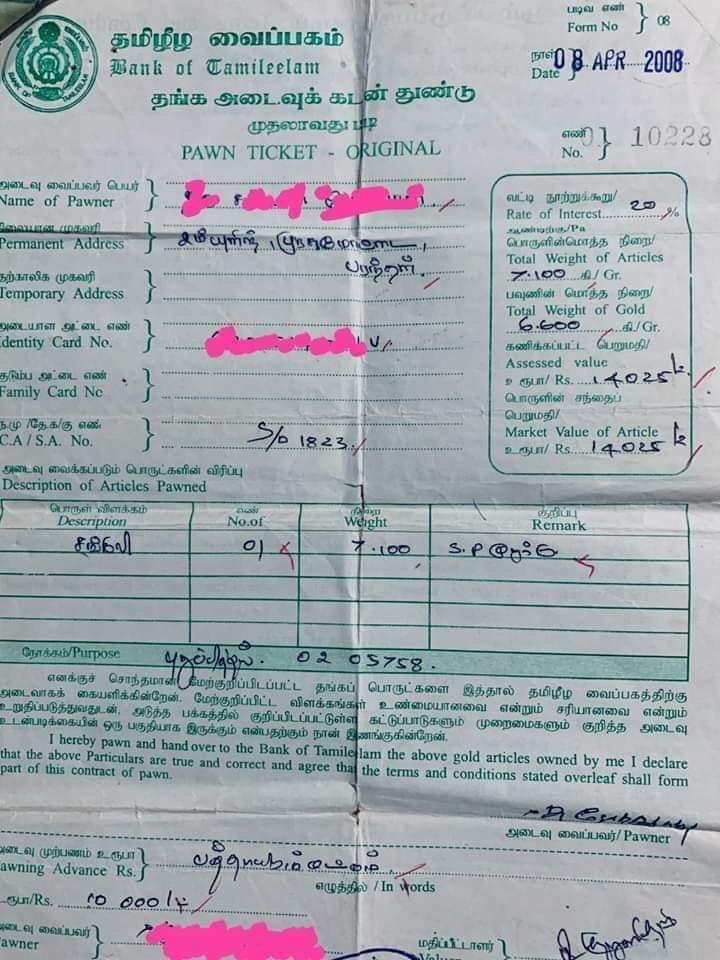 படிவ எண்
Form No } 08
தமிழீழ வைப்பகம்
Bank of Tamileelam
BANK OF TAMILEELAM
நாள்
Date } 08 APR 2008
தங்க அடைவுக் கடன் துண்டு
முதலாவது படி
PAWN TICKET - ORIGINAL
எண்
No. } 01 10228
அடைவு வைப்பவர் பெயர்
Name of Pawner }
நிலையான முகவரி
Permanent Address }
பரந்தன்.
தற்காலிக முகவரி
Temporary Address }
அடையாள அட்டை எண்
Identity Card No. } V
குடும்ப அட்டை எண்
Family Card No }
ந.மு /சே.க/கு எண்
C.A / S.A. No. } S/D 1823
வட்டி நூற்றுக்கூறு/
Rate of Interest 20 %
ஆண்டிற்கு/Pa
பொருளின்மொத்த நிறை/
Total Weight of Articles
7.100 கி/ Gr.
பவுணின் மொத்த நிறை/
Total Weight of Gold
6.600 கி/Gr.
கணிக்கப்பட்ட பெறுமதி/
Assessved value
உ ரூபா/ Rs. 14025/=
பொருளின் சந்தைப்
பெறுமதி/
Market Value of Article
உரூபா/ Rs. 14025/=
அடைவு வைக்கப்படும் பொருட்களின் விரிப்பு
Description of Articles Pawned
பொருள் விளக்கம் எண் நிறை குறிப்பு
Description No.of Weight Remark
01 7.100 S.P
நோக்கம்/Purpose 02 05758.
எனக்குச் சொந்தமான மேற்குறிப்பிடப்பட்ட தங்கப் பொருட்களை இத்தால் தமிழீழ வைப்பகத்திற்கு
அடைவாகக் கையளிக்கின்றேன். மேற்குறிப்பிட்ட விளக்கங்கள் உண்மையானவை என்றும் சரியானவை என்றும்
உறுதிப்படுத்துவதுடன். அடுத்த பக்கத்தில் குறிப்பிடப்பட்டுள்ள கட்டுப்பாடுகளும் முறைமைகளும் குறித்த அடைவு
உடன்படிக்கையின் ஒரு பகுதியாக இருக்கும் என்பதற்கும் நான் இணங்குகின்றேன்.
I hereby pawn and hand over to the Bank of Tamileelam the above gold articles owned by me I declare
that the above Particulars are true and correct and agree that the terms and conditions stated overleaf shall form
part of this contract of pawn.
அடைவு வைப்பவர்/ Pawner
அடைவு முற்பணம் உரூபா
Pawning Advance Rs. } பத்தாயிரம் மட்டும்
எழுத்தில் / In words
ரூபா/Rs. 10 000/=
அடைவு வைப்பவர்
Pawner }
மதிப்பீட்டாளர்
Valuer }